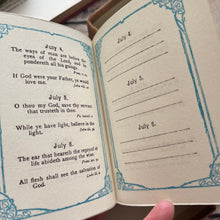 July 4.
The ways of man are before the
eyes of the Lord, and he
pondereth all his goings.
If God were your Father, ye would
love me.
July 5.
O thou my God, save thy servant
that trusteth in thee.
While ye have light, believe in the
light.
July 6.
The ear that heareth the reproof of
life abideth among the wise.
All flesh shall see the salvation of
God.
July 4.
July 5.
July 6.